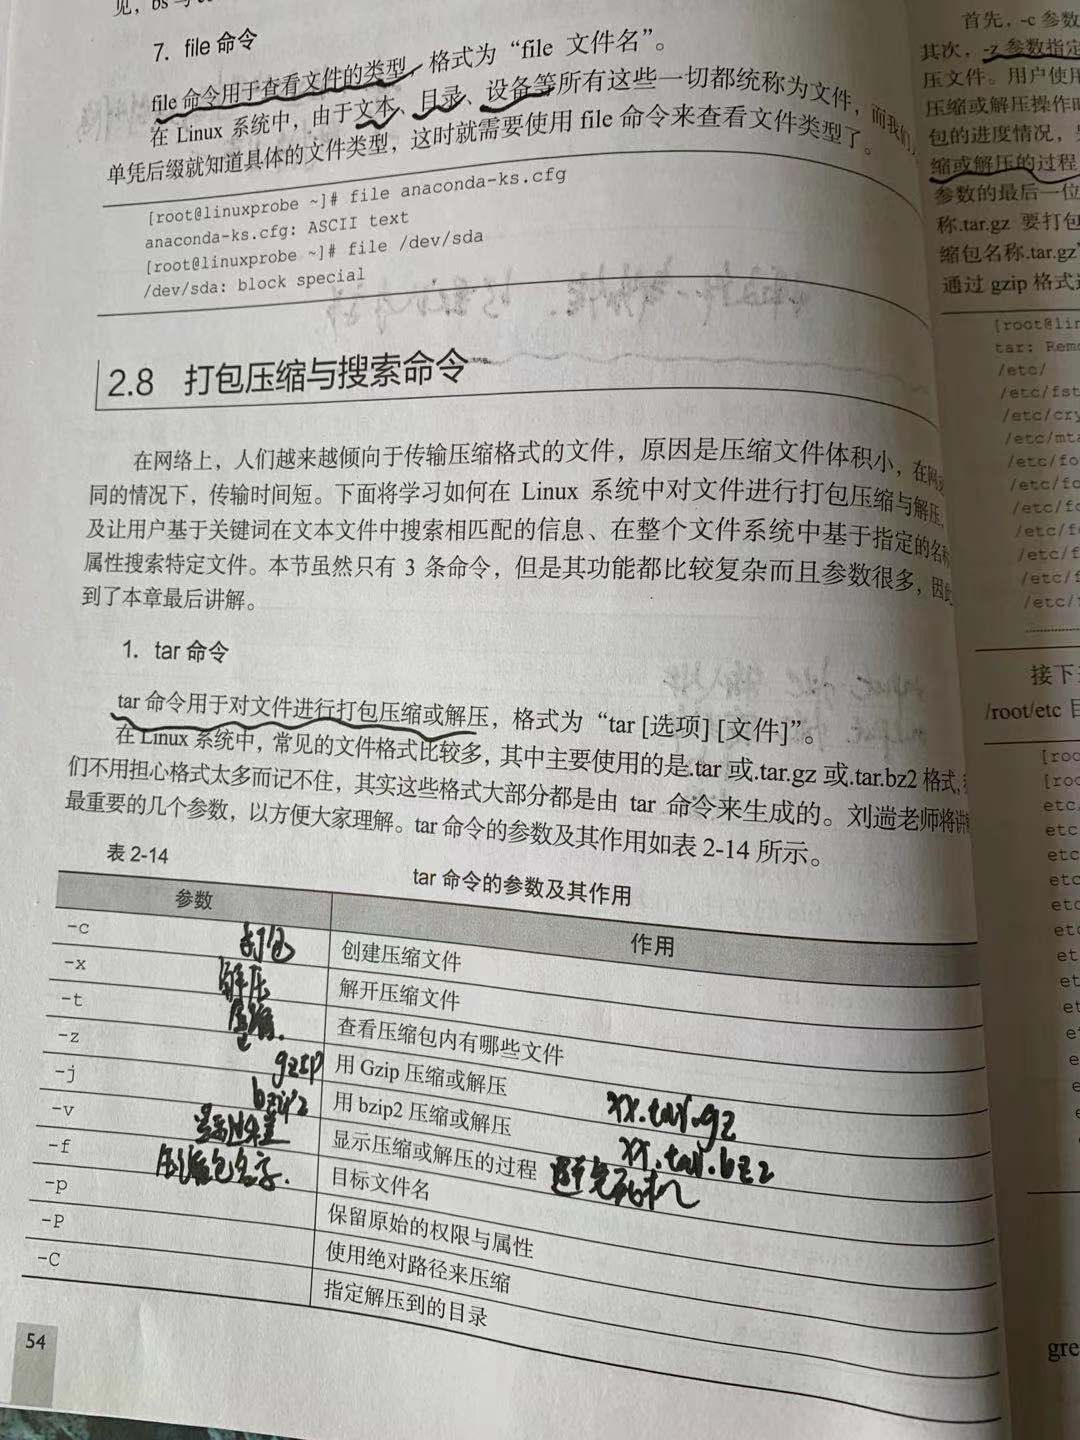 7. file 命令
file 命令用于查看文件的类型，格式为“file 文件名”。
在 Linux 系统中，由于文本、目录、设备等所有这些一切都统称为文件，而我们
单凭后缀就知道具体的文件类型，这时就需要使用 file 命令来查看文件类型了。
[root@linuxprobe ~]# file anaconda-ks.cfg
anaconda-ks.cfg: ASCII text
[root@linuxprobe ~]# file /dev/sda
/dev/sda: block special
2.8 打包压缩与搜索命令
在网络上，人们越来越倾向于传输压缩格式的文件，原因是压缩文件体积小，在网
同的情况下，传输时间短。下面将学习如何在 Linux 系统中对文件进行打包压缩与解压，
及让用户基于关键词在文本文件中搜索相匹配的信息、在整个文件系统中基于指定的名称
属性搜索特定文件。本节虽然只有 3 条命令，但是其功能都比较复杂而且参数很多，因此
到了本章最后讲解。
1. tar 命令
tar 命令用于对文件进行打包压缩或解压，格式为“tar [选项] [文件]”。
在 Linux 系统中，常见的文件格式比较多，其中主要使用的是.tar 或.tar.gz 或.tar.bz2 格式，
们不用担心格式太多而记不住，其实这些格式大部分都是由 tar 命令来生成的。刘遄老师将讲
最重要的几个参数，以方便大家理解。tar 命令的参数及其作用如表 2-14 所示。
表 2-14 tar 命令的参数及其作用
参数 作用
-c 打包 创建压缩文件
-x 解压 解开压缩文件
-t 查看压缩包内有哪些文件
-z gzip 用 Gzip 压缩或解压 xx.tar.gz
-j bzip2 用 bzip2 压缩或解压 xx.tar.bz2
-v 显示压缩或解压的过程 避免死机
-f 压缩包名字. 目标文件名
-p 保留原始的权限与属性
-P 使用绝对路径来压缩
-C 指定解压到的目录
54
首先，-c 参数
其次，-z 参数指定
压文件。用户使用
压缩或解压操作
包的进度情况，
缩或解压的过程
参数的最后一位
称.tar.gz 要打包
缩包名称.tar.gz”
通过 gzip 格式
[root@lin
tar: Remo
/etc/
/etc/fst
/etc/cry
/etc/mta
/etc/fo
/etc/fo
/etc/fo
/etc/f
/etc/f
/etc/
接下
/root/etc 目
[roo
[roo
etc/
etc
etc
etc
etc
etc
et
et
et
et
e
e
e
gre